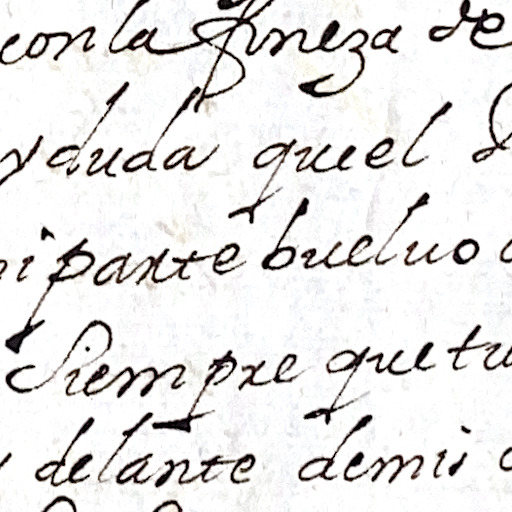 con la fineza de
y duda que el
parte buelvo
Siempre que tu
delante de mis